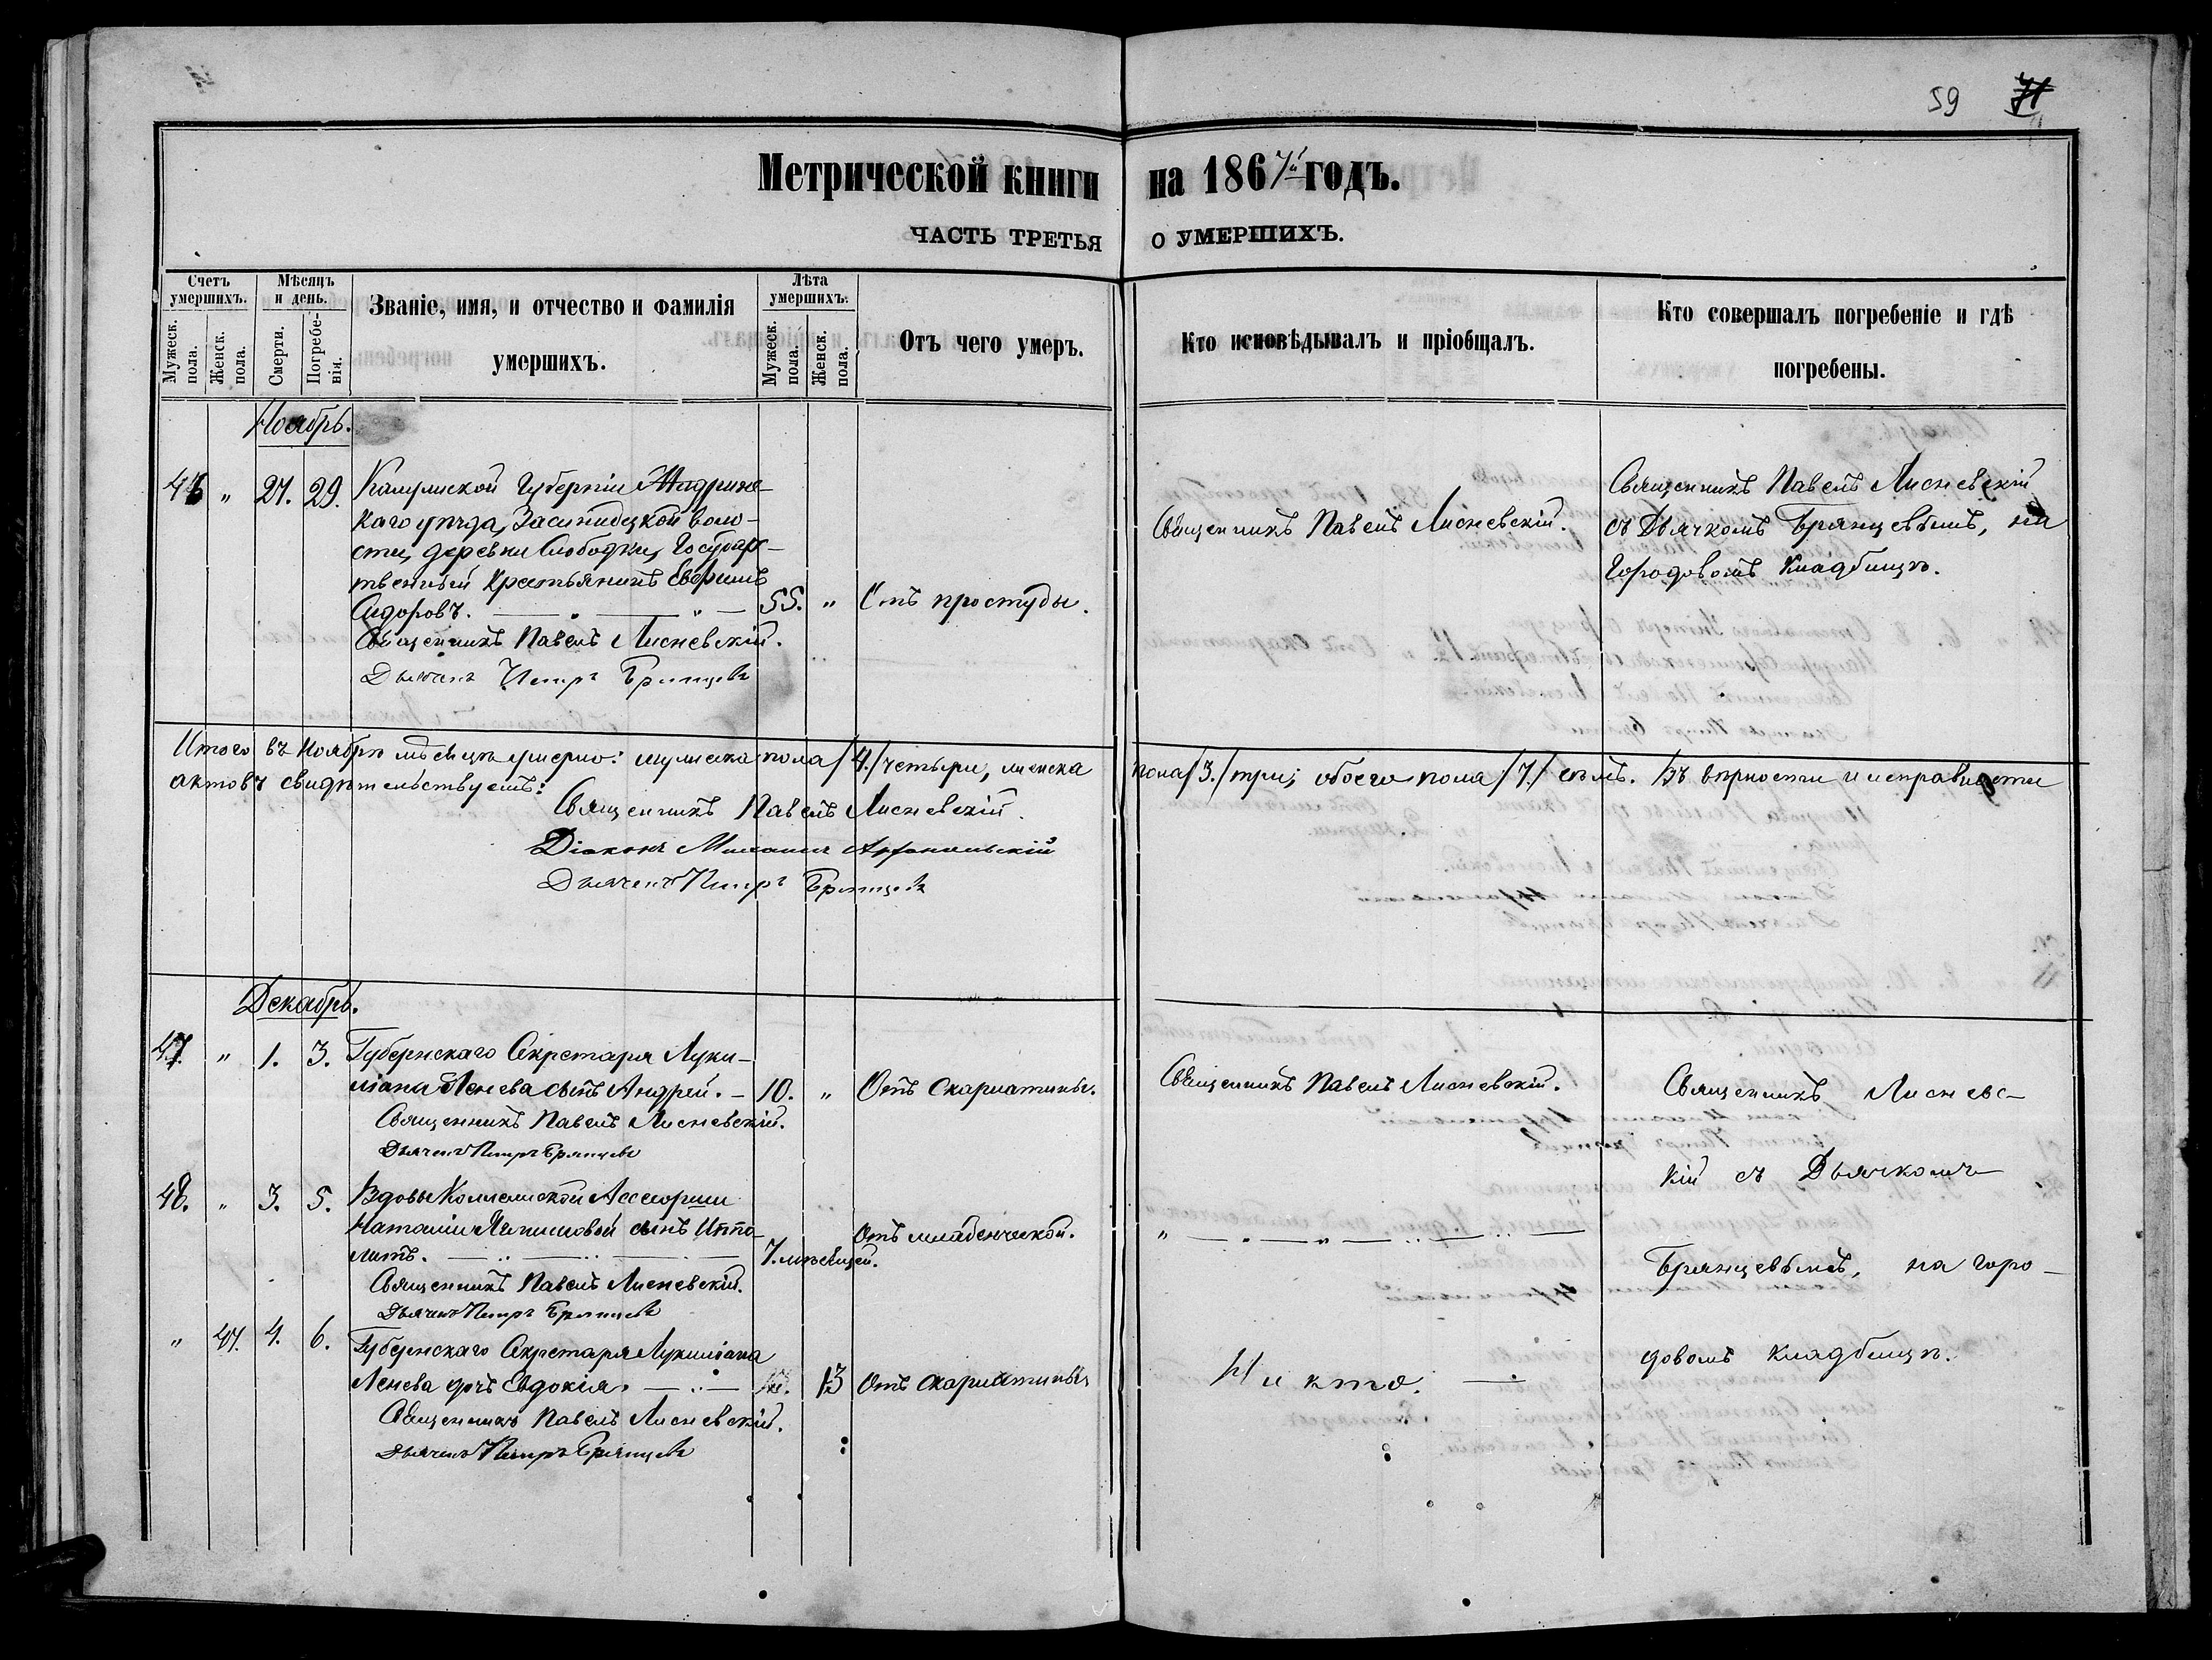 59 71
Метрической книги на 1867й годъ.
ЧАСТЬ ТРЕТЬЯ О УМЕРШИХЪ.
Счетъ умершихъ.
Мужеск. пола.
Женск. пола.
Мѣсяцъ и день.
Смерти.
Погребенія.
Званіе, имя, и отчество и фамилія
умершихъ.
Лѣта умершихъ.
Мужеск. пола.
Женск. пола.
Отъ чего умеръ.
Кто исповѣдывалъ и пріобщалъ.
Кто совершалъ погребеніе и гдѣ
погребены.
Ноябрь.
46 " 27. 29. Калужской Губерніи Жиздринс-
каго уѣзда, воло-
сти, деревни Слободки, Государс-
твенный крестьянинъ Ефимъ
Сидоровъ. 55. " Отъ простуды.
Священникъ Павелъ Лисневскій.
Дьячекъ Петръ Брянцевъ
Священникъ Павелъ Лисневскій.
Священникъ Павелъ Лисневскій
съ Дьячкомъ Брянцевымъ, на
Городовомъ Кладбищѣ.
Итого въ Ноябрѣ мѣсяцѣ умерло: мужеска пола /4./ четыре, женска пола /3./ три; обоего пола /7./ семь. Въ вѣрности и исправности
актовъ свидѣтельствуетъ:
Священникъ Павелъ Лисневскій.
Діаконъ
Дьячекъ Петръ Брянцевъ
Декабрь.
47. " 1. 3. Губернскаго Секретаря Луки-
ліана Ленева сынъ Андрей. 10. " Отъ Скарлатины.
Священникъ Павелъ Лисневскій.
Дьячекъ Петръ Брянцевъ
Священникъ Павелъ Лисневскій.
48. " 3. 5. Вдовы Коллежской Ассесорши
Наталіи сынъ Иппо-
литъ. 7. мѣсяцей. Отъ младенческой.
Священникъ Павелъ Лисневскій.
Дьячекъ Петръ Брянцевъ
" 47. 4. 6. Губернскаго Секретаря Лукиліана
Ленева дочь Евдокія. 13 Отъ скарлатины
Священникъ Павелъ Лисневскій.
Дьячекъ Петръ Брянцевъ
Никто.
Священникъ Лисневс-
кій съ Дьячкомъ
Брянцевымъ, на горо-
довомъ кладбищѣ.